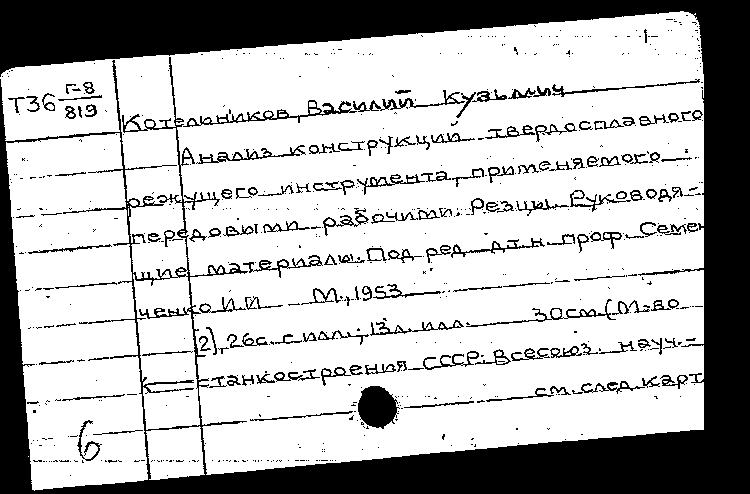 Т36 Г-8
819
Котельников, Василий Кузьмич
Анализ конструкций твердосплавного
режущего инструмента, применяемого
передовыми рабочими. Резцы. Руководя-
щие материалы. Под ред. д.т.н. проф. Семен
ченко И.И М., 1953
[2], 26с. с илл.; 13л. илл. 30см. (М-во
станкостроения СССР. Всесоюз. науч.-
см. след. карт
6